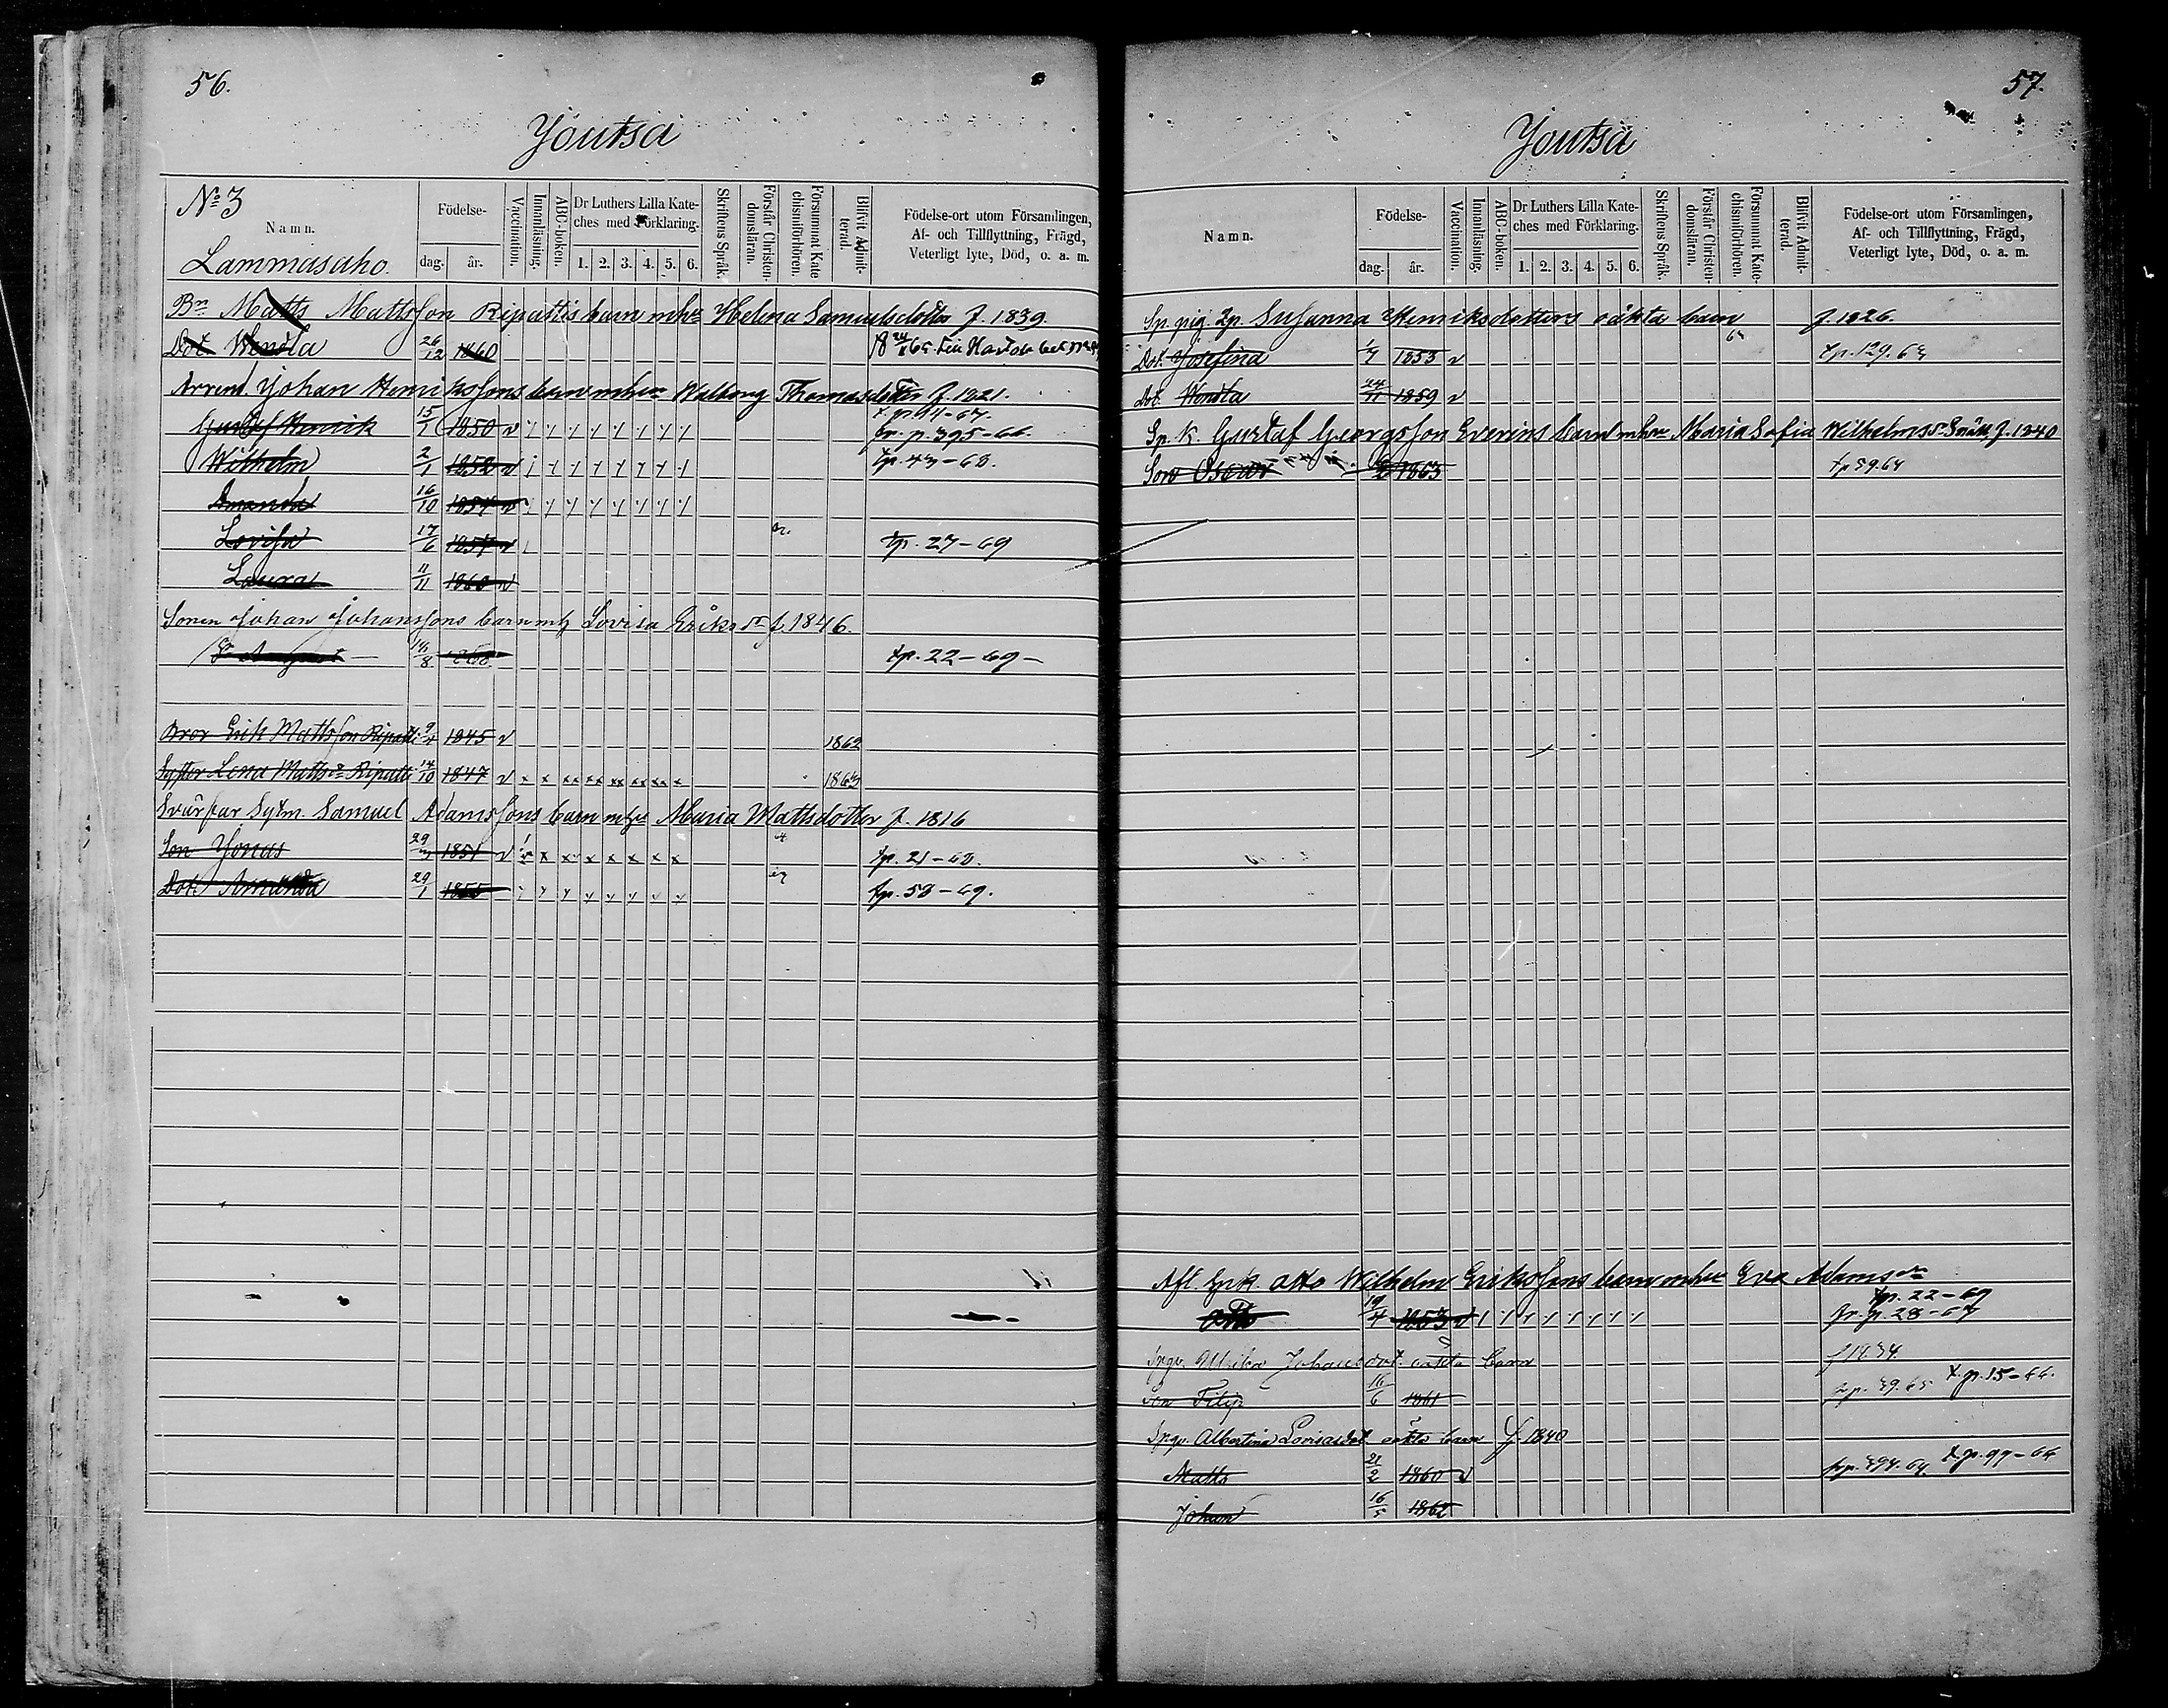 56.
Joutsa
No 3
Namn.
Lammasaho.
Födelse-
dag.
år.
Vaccination.
Innanläsning.
ABC-boken.
Dr Luthers Lilla Kate-
ches med Förklaring.
1. 2. 3. 4. 5. 6.
Skriftens Språk.
Förstår Christen-
domsläran.
Försummat Kate
chismiförhören.
Blifvit Admit-
terad.
Födelse-ort utom Församlingen,
Af- och Tillflyttning, Frägd,
Veterligt lyte, Död, o. a. m.
Bn Matts Mattsson Ripattis barn mhu Helena Samuelsdotter f. 1839.
Dot. Wendla 26/12 1860
Arrend. Johan Henrikssons barn mhu Walborg Thomasdotter f. 1821.
Gustaf Henrik 15/1 1850 v fr. p. 395-66.
Wilhelm 2/1 1852 v tp. 43-68.
Amanda 16/10 1854 v
Lovisa 17/6 1857 v tp. 27-69
Laura 11/11 1860 v
Sonen Johan Johanssons barn mh Lovisa Eriksdr f. 1846.
Sn August 1868 tp. 22-69-
Bror Erik Mattsson Ripatti 9/4 1845 v 1862
Syster Lena Mattsdr Ripatti 14/10 1847 v x x xx xx xx xx xx x 1863
Svärfar Sytm. Samuel Adamssons barn mhu Maria Mattsdotter f. 1816
Son Jonas 29/3 1851 v x x x x x x x tp. 21-68.
Dot. Amanda 29/1 1855 tp. 58-69.
57.
Joutsa
Namn.
Födelse-
dag.
år.
Vaccination.
Innanläsning.
ABC-boken.
Dr Luthers Lilla Kate-
ches med Förklaring.
1. 2. 3. 4. 5. 6.
Skriftens Språk.
Förstår Christen-
domsläran.
Försummat Kate-
chismiförhören.
Blifvit Admit-
terad.
Födelse-ort utom Församlingen,
Af- och Tillflyttning, Frägd,
Veterligt lyte, Död, o. a. m.
Sp. pig. Susanna Henriksdotters oäkta barn f. 1826.
Dot. Josefina 1/7 1853 v tp. 129. 63
Dot. Wendla 24/11 1859 v
Sp. k. Gustaf Georgsson Everins barn mhu Maria Sofia Wilhelmsdr f. 1840
Son Oscar 1863 tp 59. 64
Afl. Otto Wilhelm Erikssons barn mhu Eva Adamsdr
tp. 22-69
Otto 19/4 1853 v fr. p. 28-67
Ulrika Johansdot. oäkta barn f 1834.
Son Filip 16/6 1861 t. p. 15-66.
Albertina Lovisasdot oäkta barn f. 1840
Matts 21/2 1860 v t. p. 99-66
Johan 16/5 1862